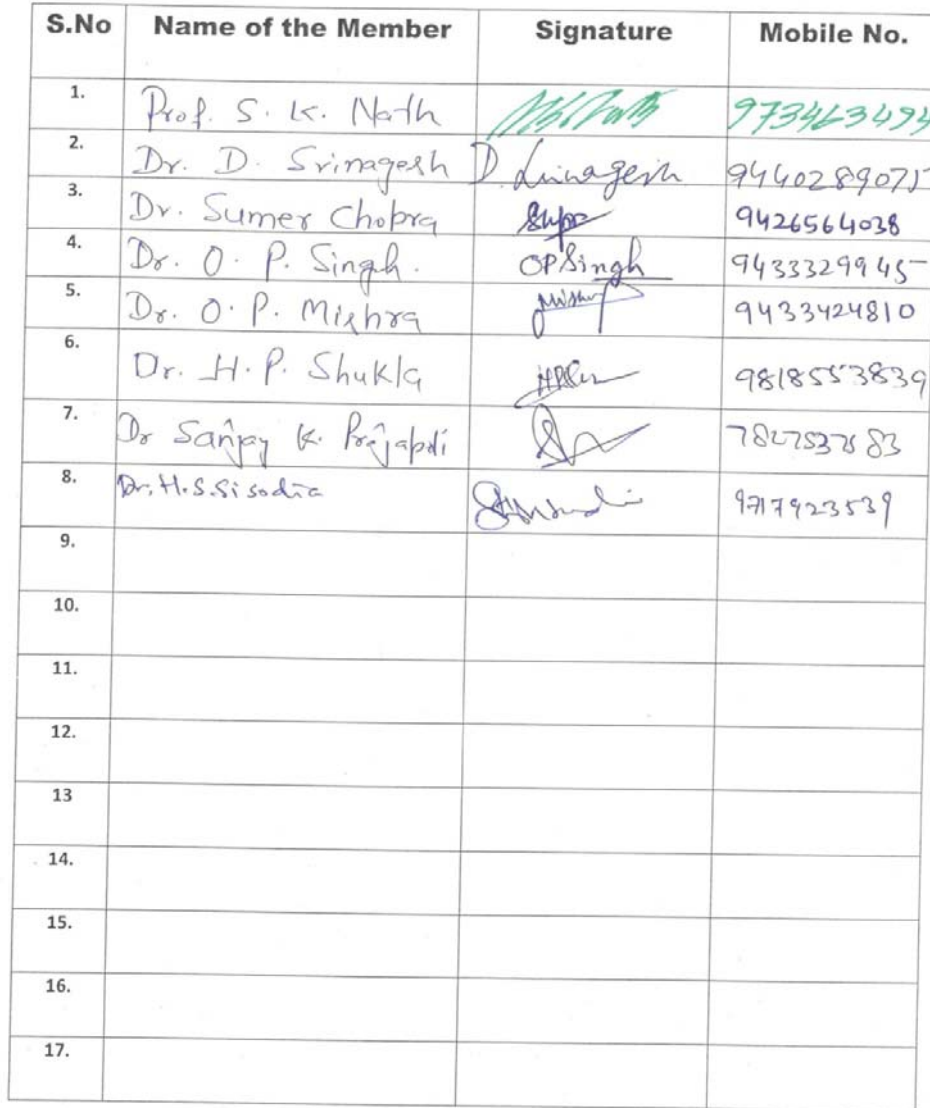 S.No Name of the Member Signature Mobile No.
1. Prof. S. K. Nath 973463494
2. Dr. D. Srinagesh D. Srinagesh 9440289075
3. Dr. Sumer Chopra 9426564038
4. Dr. O. P. Singh. OPSingh 9433329945
5. Dr. O. P. Mishra Mishra 9433424810
6. Dr. H. P. Shukla 9818553839
7. Dr Sanjay K. Prajapati 7827537583
8. Dr. H.S. Sisodia 9717923539
9.
10.
11.
12.
13
14.
15.
16.
17.